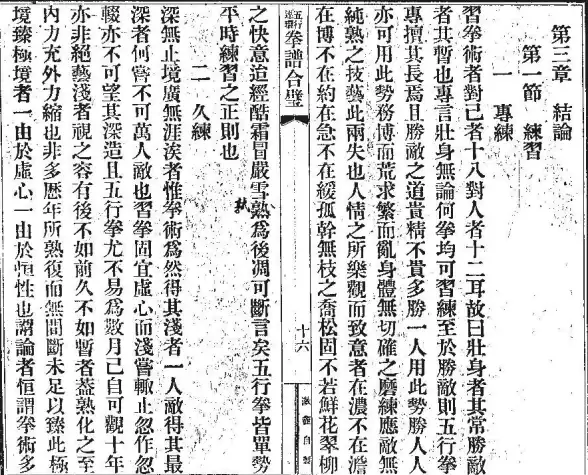 第三章　結論
第一節　練習
一　專練
習拳術者對己者十八對人者十二耳故曰壯身者其常勝敵
者其暫也專言壯身無論何拳均可習練至於勝敵則五行拳
專擅其長焉且勝敵之道貴精不貴多勝一人用此勢勝人人
亦可用此勢務博而荒求繁而亂身體無切確之磨練應敵無
純熟之技藝此兩失也人情之所樂觀而致意者在濃不在澹
在博不在約在急不在緩孤幹無枝之喬松固不若鮮花翠柳
五行連環拳譜合璧
十六
之快意迨經酷霜冒嚴雪熟為後凋可斷言矣五行拳皆單勢
孰
平時練習之正則也
二　久練
深無止境廣無涯涘者惟拳術為然得其淺者一人敵得其最
深者何嘗不可萬人敵也習拳固宜虛心而淺嘗輒止忽作忽
輟亦不可望其深造且五行拳尤不易為數月已自可觀十年
亦非絕藝淺者視之容有後不如前久不如暫者蓋熟化之至
內力充外力縮也非多歷年所熟復而無間斷未足以臻此極
境臻極境者一由於虛心一由於恒性也謂論者恒謂拳術多